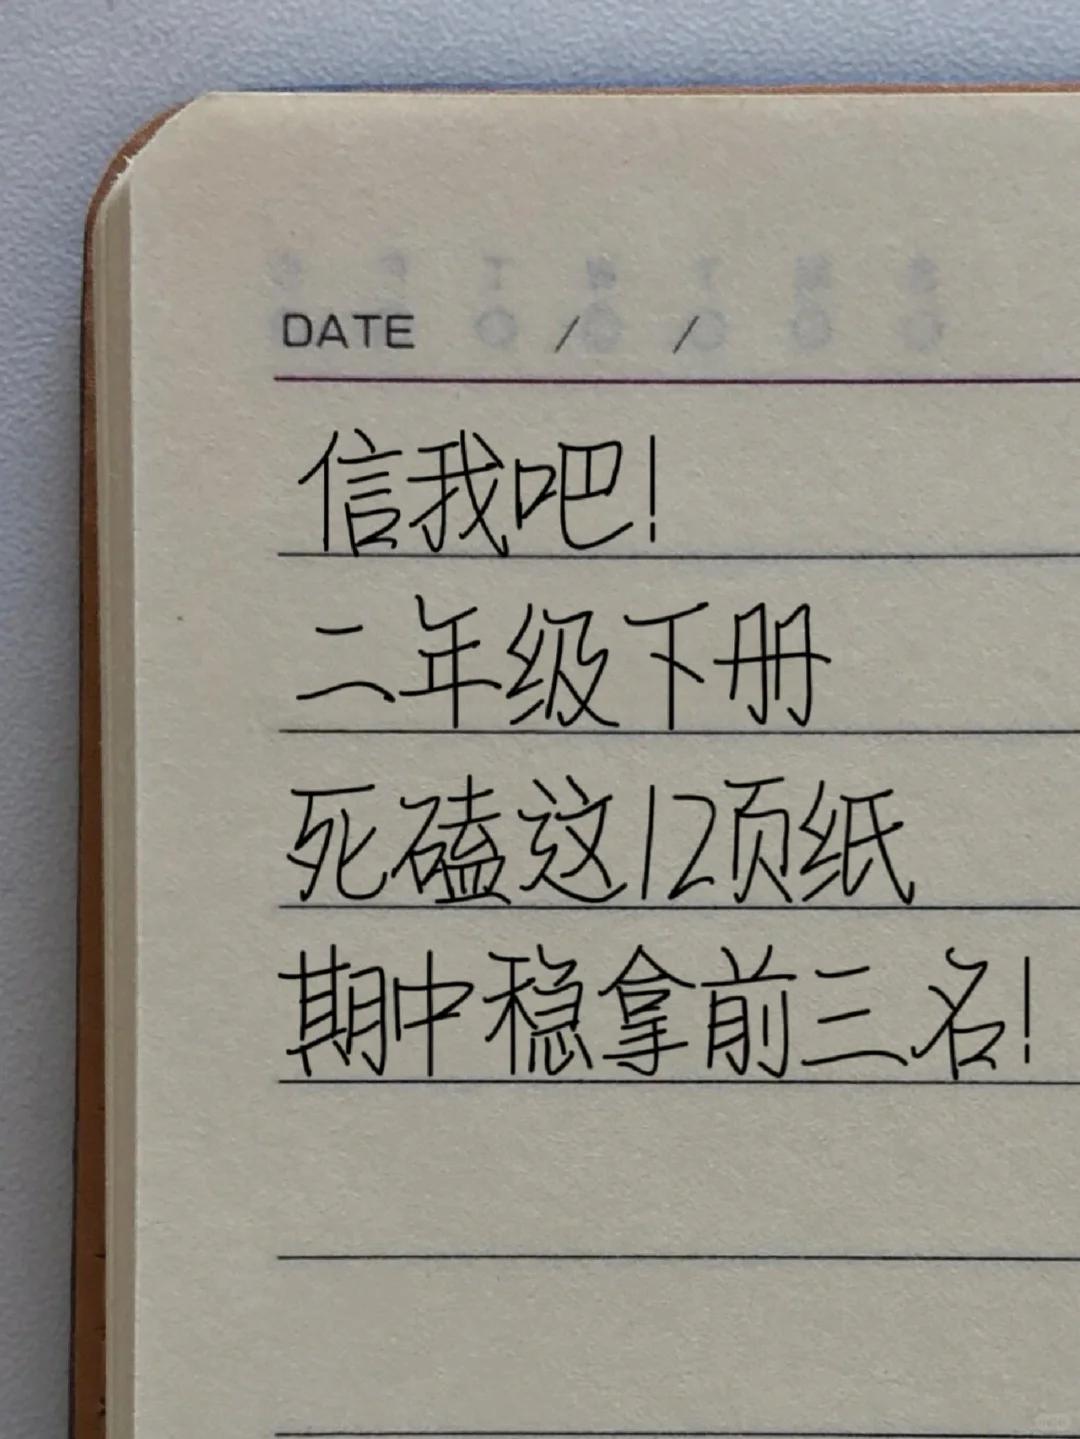 DATE / /
信我吧!
二年级下册
死磕这12页纸
期中稳拿前三名!